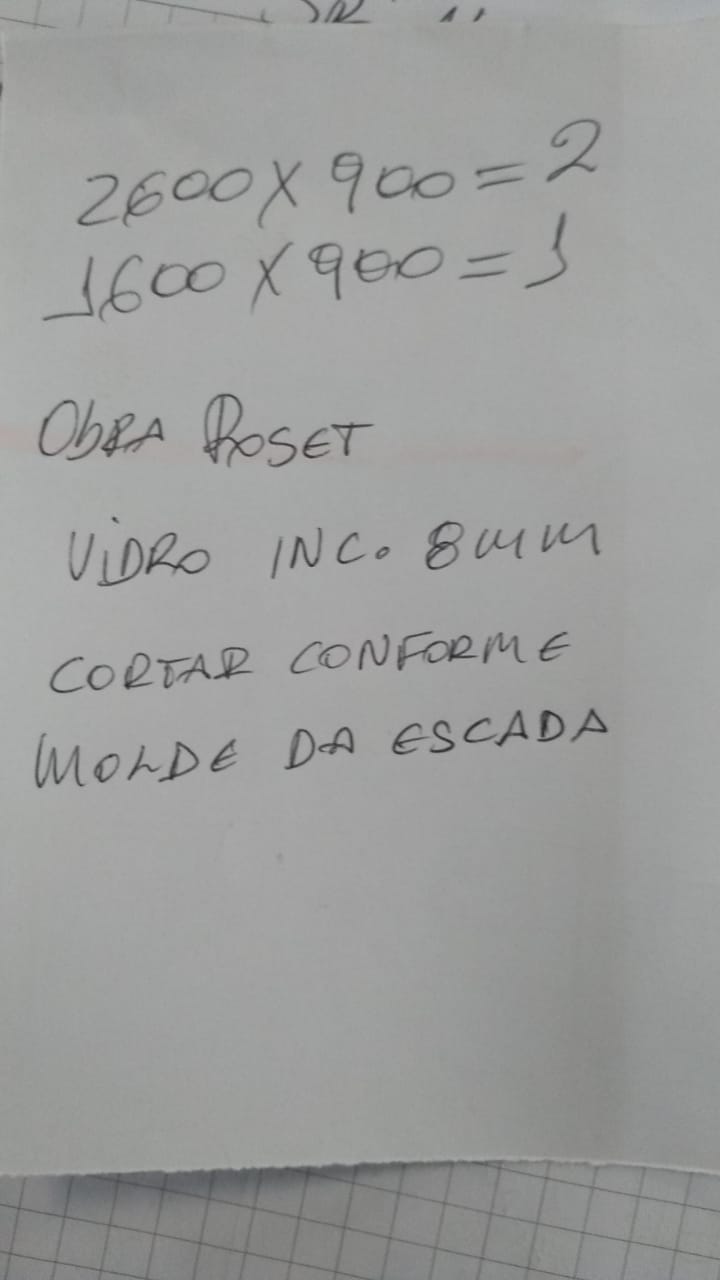 2600 X 900 = 2
1600 X 900 = 1
ObRA ROSET
ViDRO INC. 8mm
CORTAR CONFORME
MOLDE DA ESCADA